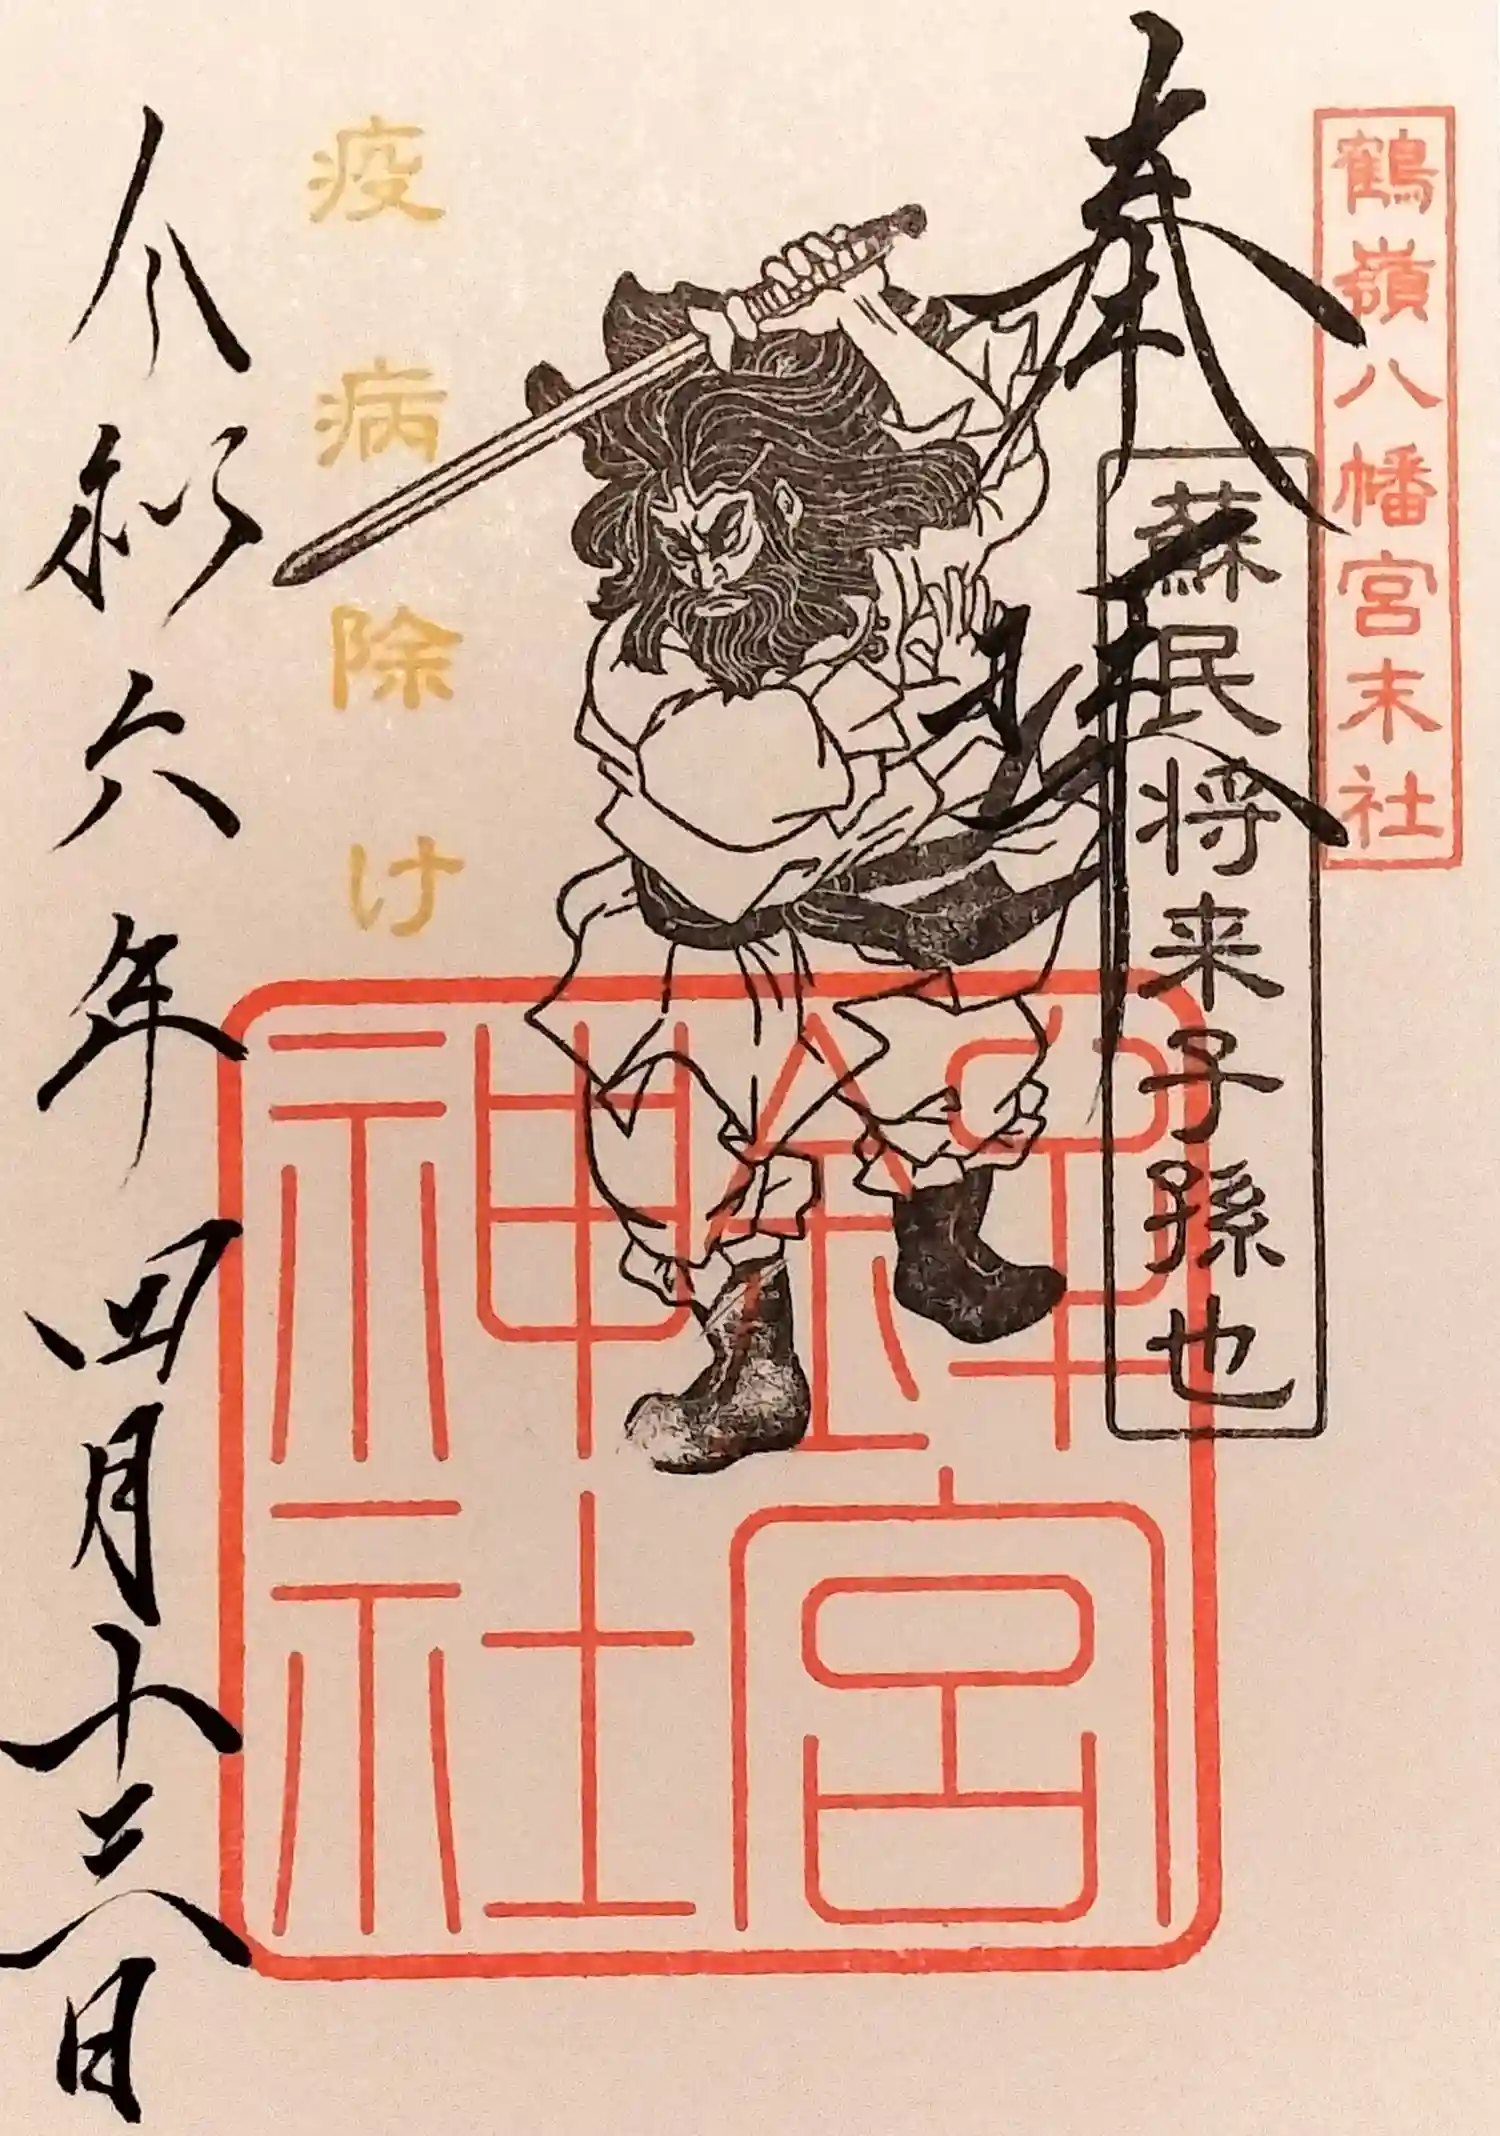 鶴嶺八幡宮末社
奉拝
蘇民将来子孫也
鉾宮
神社
疫病除け
令和六年四月十三日